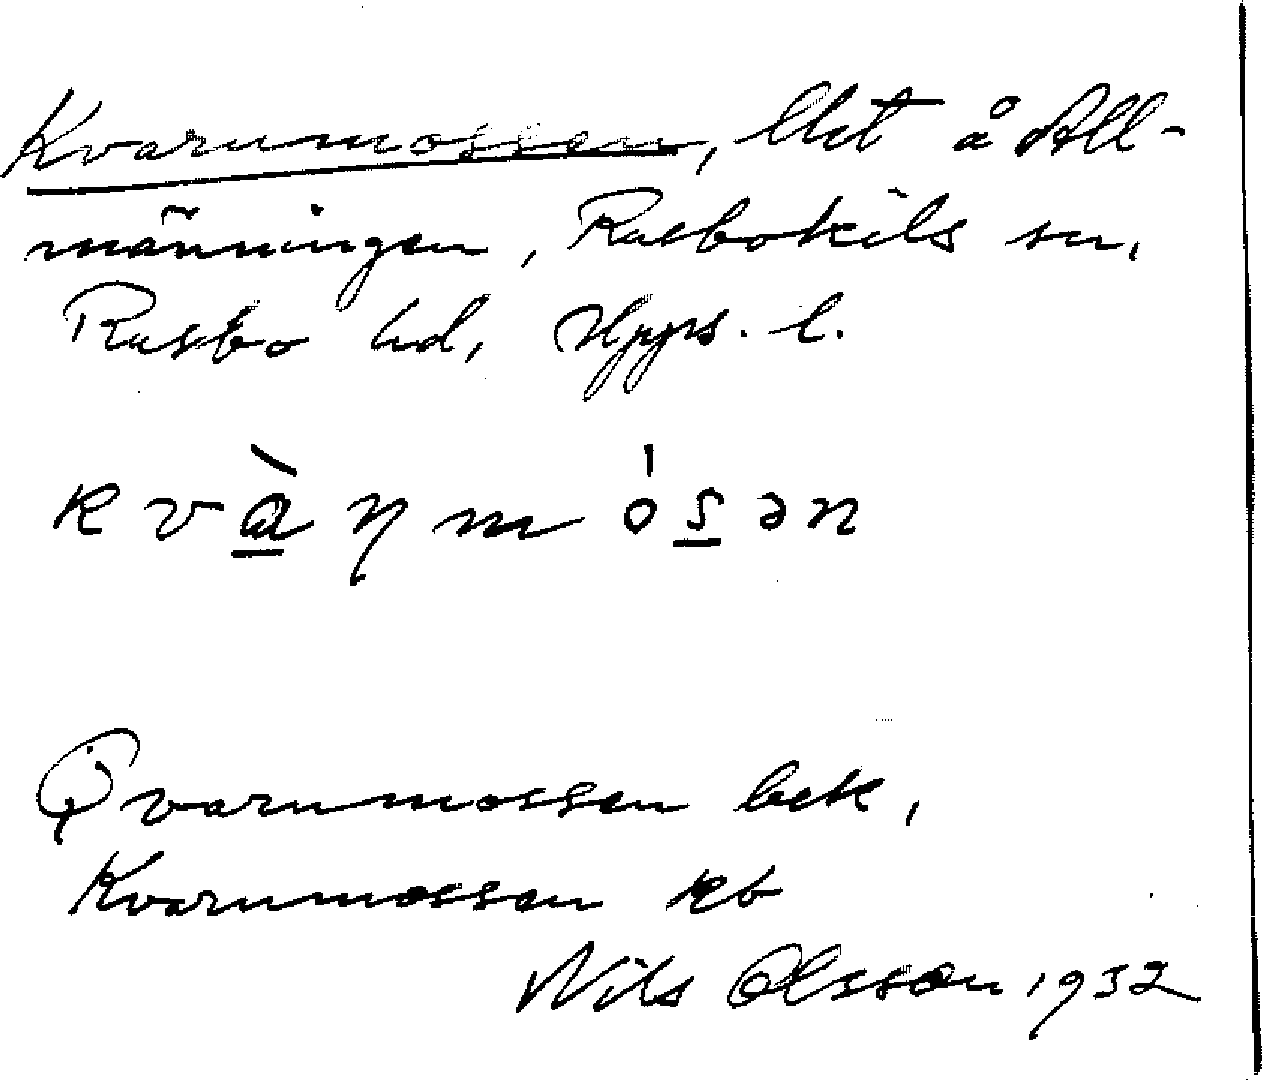 Kvarnmossen, lht å All-
männingen, Rasbokils sn,
Rasbo hd, Upps. l.
kvὰ̱ɳmós̱ən
Qvarnmossen bek,
Kvarnmossen kb
Nils Olsson 1932